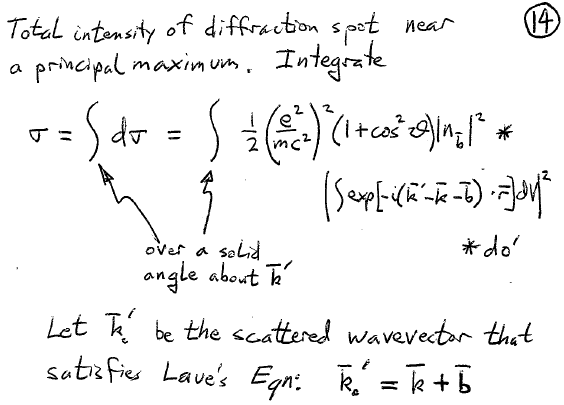 Total intensity of diffraction spot near
(14)
a principal maximum. Integrate
σ = ∫ dσ = ∫ ½ (e²/mc²)² (1+cos²ϑ)|n_b̄|² *
|∫ exp[-i(k̄'-k̄-b̄)·r̄]dV|²
* do'
over a solid
angle about k̄'
Let k̄₀' be the scattered wavevector that
satisfies Laue's Eqn: k̄₀' = k̄ + b̄